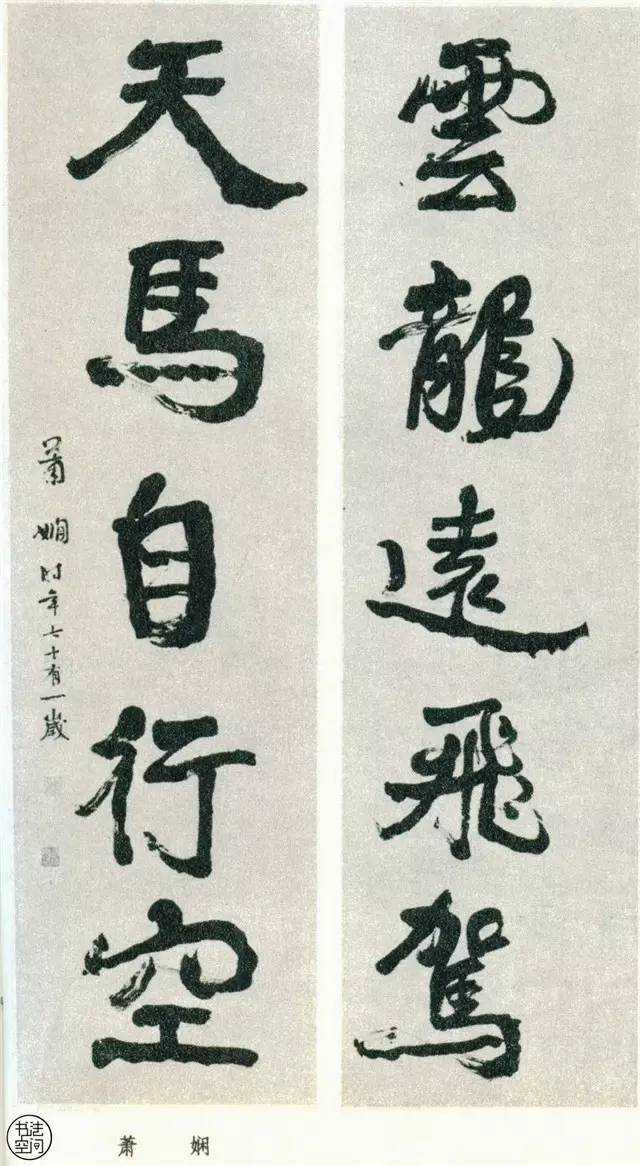 雲龍遠飛駕
天馬自行空
蕭嫻时年七十有一歲
萧娴
书法空间